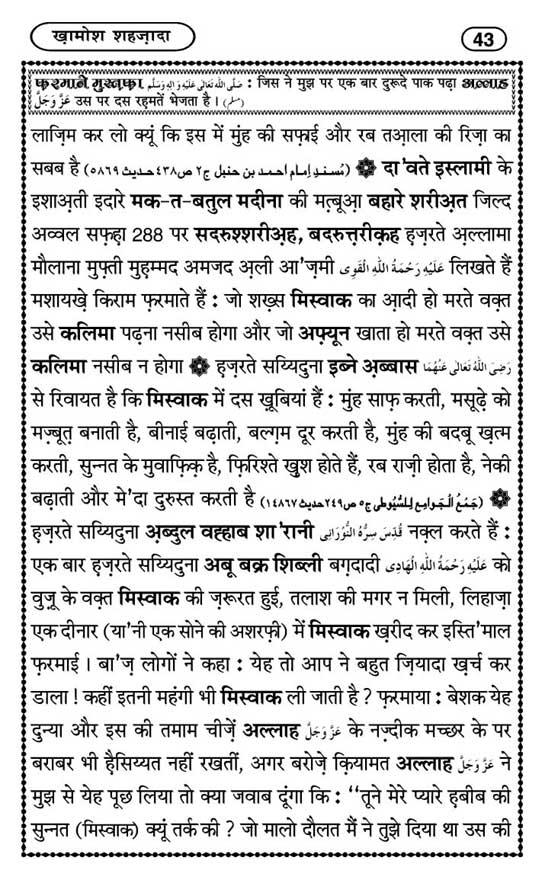 ख़ामोश शहज़ादा
43
फ़रमाने मुस्तफ़ा صَلَّى اللهُ تَعَالٰى عَلَيْهِ وَاٰلِهٖ وَسَلَّم : जिस ने मुझ पर एक बार दुरूदे पाक पढ़ा अल्लाह
عَزَّوَجَلَّ उस पर दस रहमतें भेजता है । (مسلم)
लाज़िम कर लो क्यूं कि इस में मुंह की सफ़ाई और रब तआ़ला की रिज़ा का
सबब है (مُسندِ اِمام احمد بن حنبل ج٢ ص٤٣٨ حديث ٥٨٦٩) ❁ दा'वते इस्लामी के
इशाअ़ती इदारे मक-त-बतुल मदीना की मत़्बूआ बहारे शरीअ़त जिल्द
अव्वल सफ़्हा 288 पर सदरुश्शरीअ़ह, बदरुत़्त़रीक़ह ह़ज़रते अ़ल्लामा
मौलाना मुफ़्ती मुह़म्मद अमजद अ़ली आ'ज़मी عَلَيْهِ رَحْمَةُ اللهِ الْقَوِى लिखते हैं
मशायख़े किराम फ़रमाते हैं : जो शख़्स मिस्वाक का आ़दी हो मरते वक़्त
उसे कलिमा पढ़ना नसीब होगा और जो अफ़्यून खाता हो मरते वक़्त उसे
कलिमा नसीब न होगा ❁ ह़ज़रते सय्यिदुना इब्ने अ़ब्बास رَضِىَ اللهُ تَعَالٰى عَنْهُمَا
से रिवायत है कि मिस्वाक में दस ख़ूबियां हैं : मुंह साफ़ करती, मसूढ़े को
मज़्बूत़ बनाती है, बीनाई बढ़ाती, बल्ग़म दूर करती है, मुंह की बदबू ख़त्म
करती, सुन्नत के मुवाफ़िक़ है, फ़िरिश्ते ख़ुश होते हैं, रब राज़ी होता है, नेकी
बढ़ाती और मे'दा दुरुस्त करती है (جَمْعُ الْجَوامِع لِلسُّيُوطى ج٥ ص٢٤٩ حديث ١٤٨٦٧) ❁
ह़ज़रते सय्यिदुना अ़ब्दुल वह्हाब शा'रानी قُدِّسَ سِرُّهُ النُّوْرَانِى नक़्ल करते हैं :
एक बार ह़ज़रते सय्यिदुना अबू बक्र शिब्ली बग़दादी عَلَيْهِ رَحْمَةُ اللهِ الْهَادِى को
वुज़ू के वक़्त मिस्वाक की ज़रूरत हुई, तलाश की मगर न मिली, लिहाज़ा
एक दीनार (या'नी एक सोने की अशरफ़ी) में मिस्वाक ख़रीद कर इस्ति'माल
फ़रमाई । बा'ज़ लोगों ने कहा : येह तो आप ने बहुत ज़ियादा ख़र्च कर
डाला ! कहीं इतनी महंगी भी मिस्वाक ली जाती है ? फ़रमाया : बेशक येह
दुन्या और इस की तमाम चीज़ें अल्लाह عَزَّوَجَلَّ के नज़्दीक मच्छर के पर
बराबर भी ह़ैसिय्यत नहीं रखतीं, अगर बरोज़े क़ियामत अल्लाह عَزَّوَجَلَّ ने
मुझ से येह पूछ लिया तो क्या जवाब दूंगा कि : ‘‘तूने मेरे प्यारे ह़बीब की
सुन्नत (मिस्वाक) क्यूं तर्क की ? जो मालो दौलत मैं ने तुझे दिया था उस की